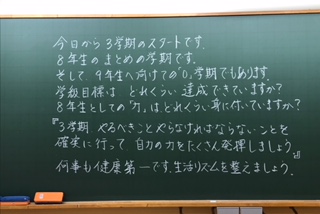 今日から3学期のスタートです.
8年生のまとめの学期です.
そして、9年生へ向けての"0"学期でもあります.
学級目標は どれくらい 達成できていますか?
8年生としての"力"はどれくらい身に付いていますか?
『3学期 やるべきこと やらなければならないことを
確実に行って 自分の力をたくさん発揮しましょう。』
何事も健康第一です.生活リズムを整えましょう.